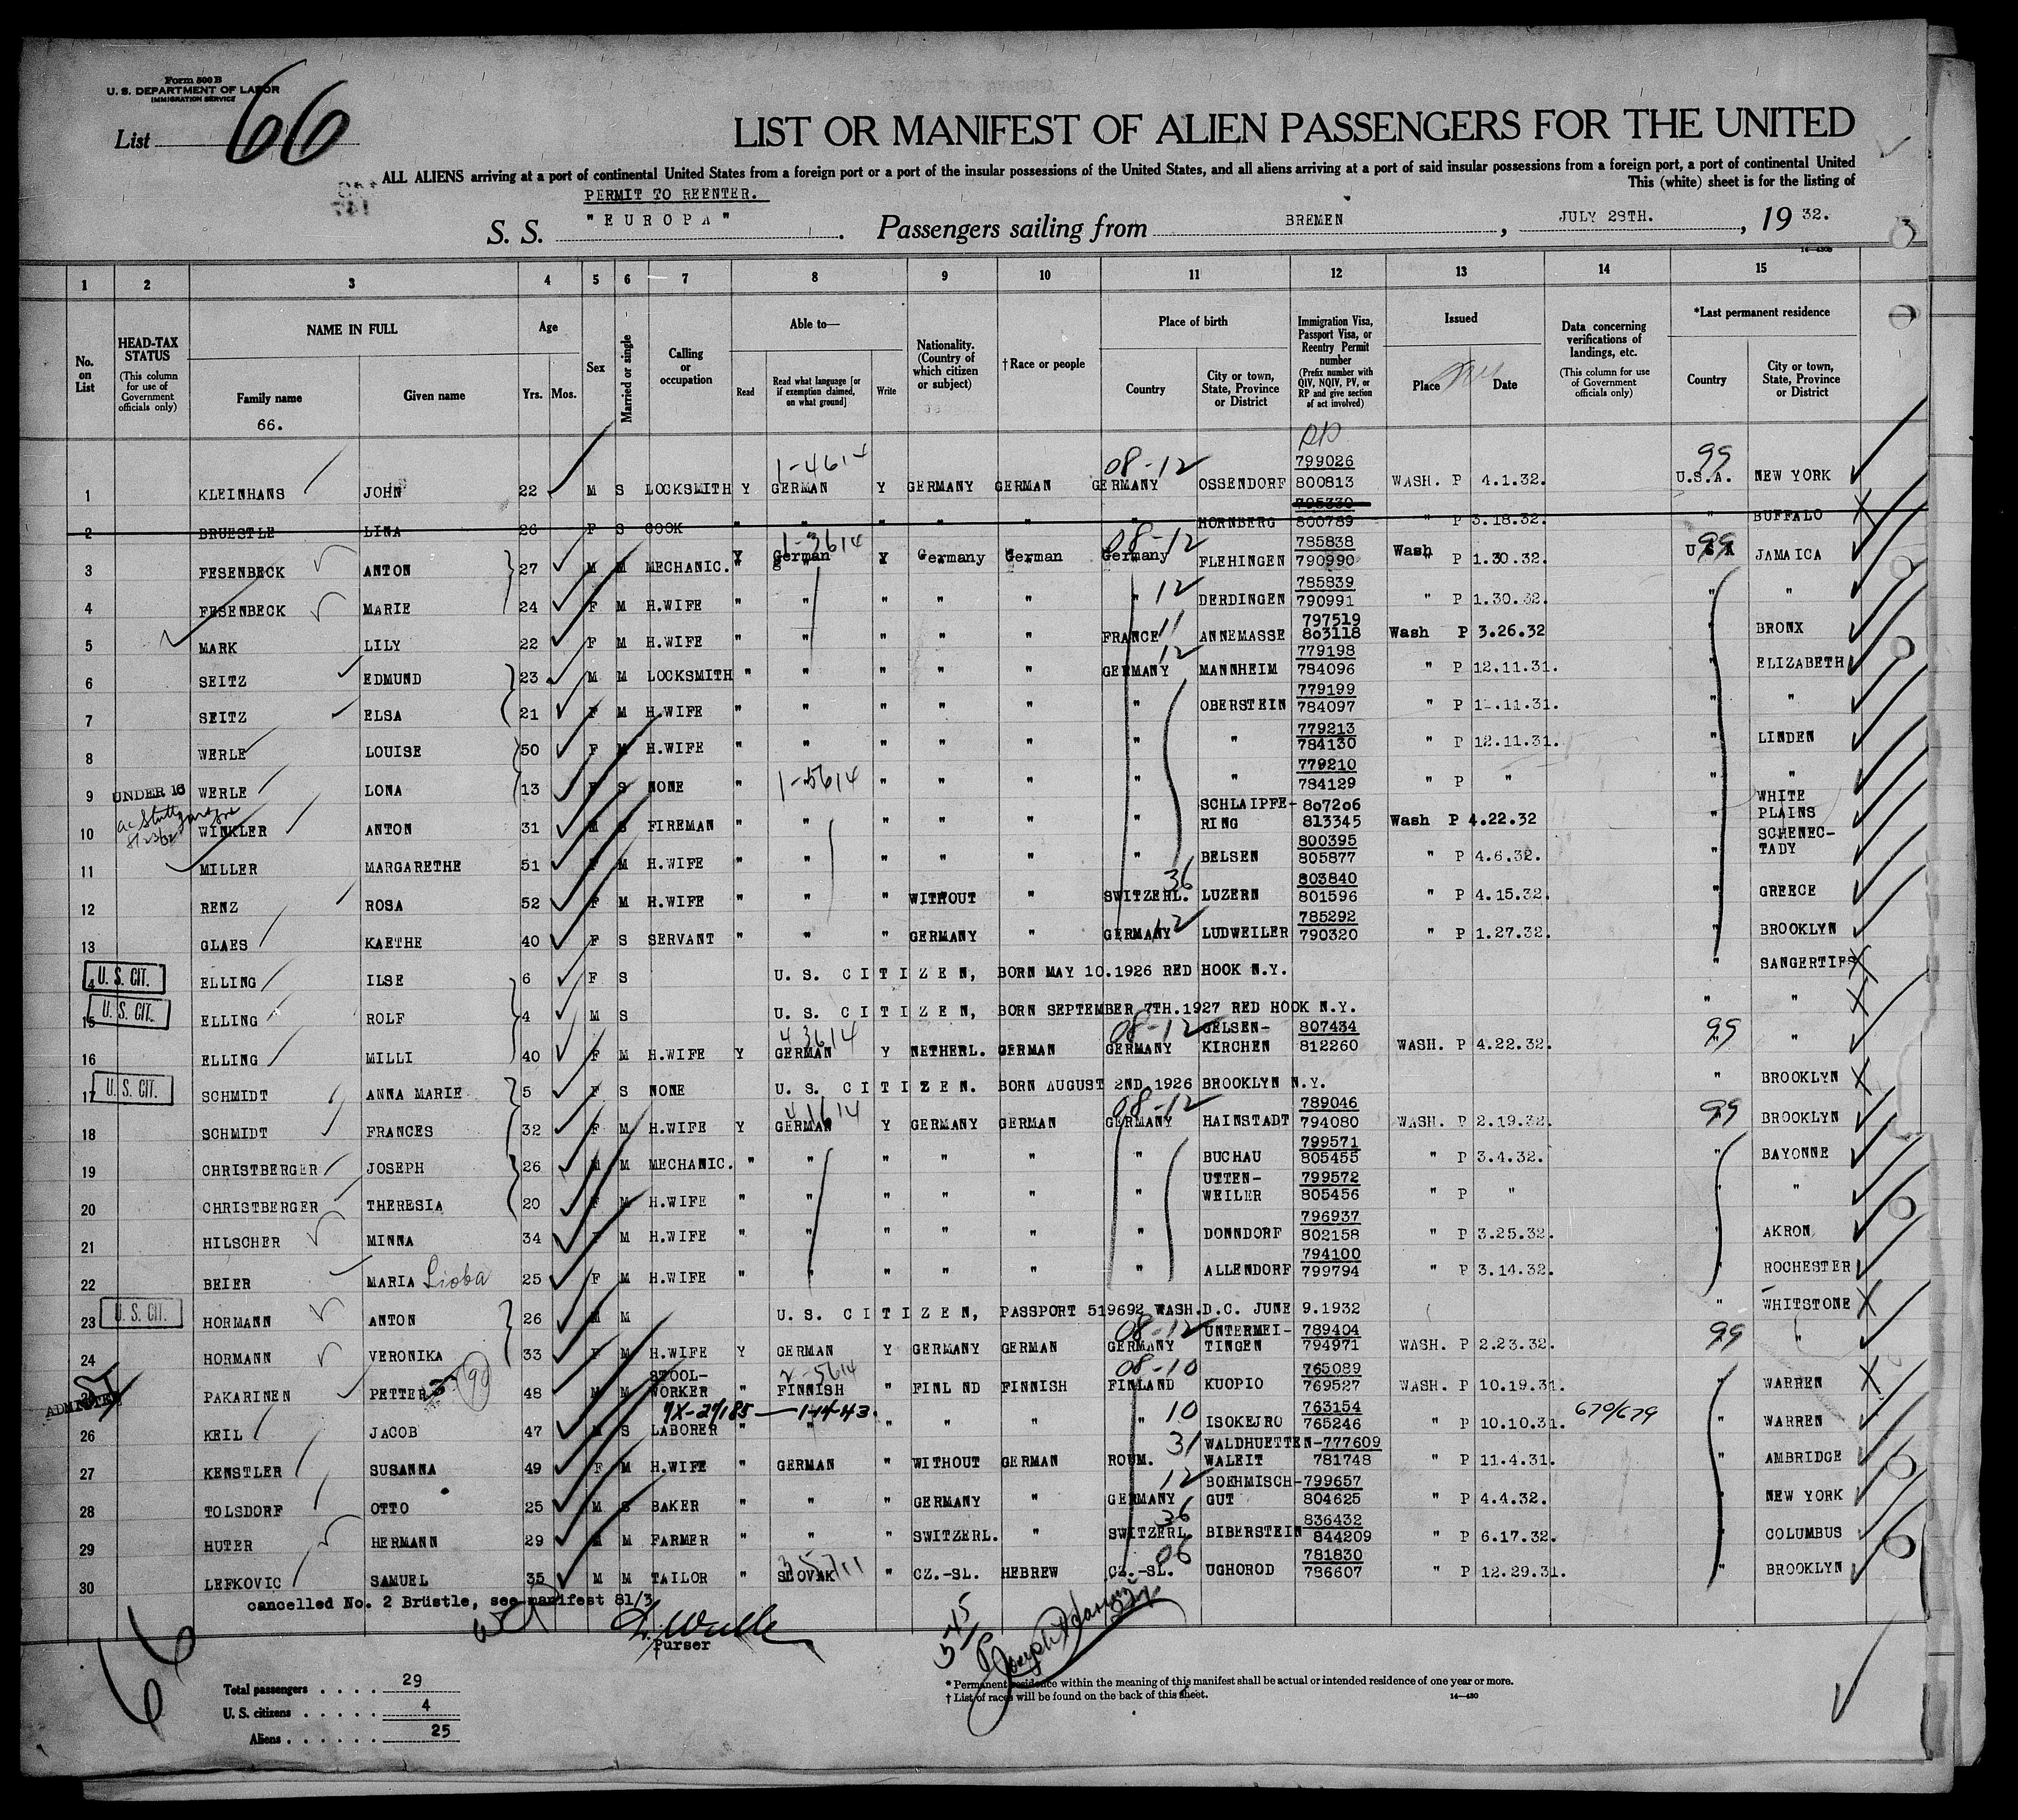 Form 500 B
U. S. DEPARTMENT OF LABOR
IMMIGRATION SERVICE
List 66
LIST OR MANIFEST OF ALIEN PASSENGERS FOR THE UNITED
ALL ALIENS arriving at a port of continental United States from a foreign port or a port of the insular possessions of the United States, and all aliens arriving at a port of said insular possessions from a foreign port, a port of continental United
This (white) sheet is for the listing of
PERMIT TO REENTER.
S. S. "EUROPA". Passengers sailing from BREMEN, JULY 28TH., 19 32.
14—430B
1 2 3 4 5 6 7 8 9 10 11 12 13 14 15
No. on List
HEAD-TAX STATUS (This column for use of Government officials only)
NAME IN FULL
Family name
Given name
66.
Age
Yrs. Mos.
Sex
Married or single
Calling or occupation
Able to—
Read
Read what language [or if exemption claimed, on what ground]
Write
Nationality. (Country of which citizen or subject)
† Race or people
Place of birth
Country
City or town, State, Province or District
Immigration Visa, Passport Visa, or Reentry Permit number (Prefix number with QIV, NQIV, PV, or RP and give section of act involved)
Issued
Place
Date
Data concerning verifications of landings, etc. (This column for use of Government officials only)
*Last permanent residence
Country
City or town, State, Province or District
RP
1-4614 08-12 799026 99
1 KLEINHANS JOHN 22 M S LOCKSMITH Y GERMAN Y GERMANY GERMAN GERMANY OSSENDORF 800813 WASH. P 4.1.32. U.S.A. NEW YORK
795330
2 BRUESTLE LINA 26 F S COOK " " " " " " HORNBERG 800789 " P 3.18.32. " BUFFALO
1-3614 08-12 785838 99
3 FESENBECK ANTON 27 M M MECHANIC. Y German Y Germany German Germany FLEHINGEN 790990 Wash P 1.30.32. USA JAMAICA
12 785839
4 FESENBECK MARIE 24 F M H.WIFE " " " " " " DERDINGEN 790991 " P 1.30.32. " "
11 797519
5 MARK LILY 22 F M H.WIFE " " " " " FRANCE ANNEMASSE 803118 Wash P 3.26.32 " BRONX
12 779198
6 SEITZ EDMUND 23 M M LOCKSMITH " " " " " GERMANY MANNHEIM 784096 " P 12.11.31. " ELIZABETH
779199
7 SEITZ ELSA 21 F M H.WIFE " " " " " " OBERSTEIN 784097 " P 11.11.31. " "
779213
8 WERLE LOUISE 50 F M H.WIFE " " " " " " " 784130 " P 12.11.31. " LINDEN
1-5614 779210
9 UNDER 16 WERLE LONA 13 F S NONE " " " " " " 784129 " P " " "
SCHLAIPFE- 807206 WHITE
10 WINKLER ANTON 31 M S FIREMAN " " " " " " RING 813345 Wash P 4.22.32 " PLAINS
800395 SCHENEC-
11 MILLER MARGARETHE 51 F M H.WIFE " " " " " " BELSEN 805877 " P 4.6.32. " TADY
36 803840
12 RENZ ROSA 52 F M H.WIFE " " " WITHOUT " SWITZERL. LUZERN 801596 " P 4.15.32. " GREECE
12 785292
13 GLAES KAETHE 40 F S SERVANT " " " GERMANY " GERMANY LUDWEILER 790320 " P 1.27.32. " BROOKLYN
14 U. S. CIT. ELLING ILSE 6 F S U. S. CITIZEN, BORN MAY 10.1926 RED HOOK N.Y. " SANGERTIES
15 U. S. CIT. ELLING ROLF 4 M S U. S. CITIZEN, BORN SEPTEMBER 7TH.1927 RED HOOK N.Y. " "
43614 08-12 GELSEN- 807434 99
16 ELLING MILLI 40 F M H.WIFE Y GERMAN Y NETHERL. GERMAN GERMANY KIRCHEN 812260 WASH. P 4.22.32. " "
17 U. S. CIT. SCHMIDT ANNA MARIE 5 F S NONE U. S. CITIZEN. BORN AUGUST 2ND 1926 BROOKLYN N.Y. " BROOKLYN
41614 08-12 789046 99
18 SCHMIDT FRANCES 32 F M H.WIFE Y GERMAN Y GERMANY GERMAN GERMANY HAINSTADT 794080 WASH. P 2.19.32. " BROOKLYN
799571
19 CHRISTBERGER JOSEPH 26 M M MECHANIC. " " " " " " BUCHAU 805455 " P 3.4.32. " BAYONNE
UTTEN- 799572
20 CHRISTBERGER THERESIA 20 F M H.WIFE " " " " " " WEILER 805456 " P " " "
796937
21 HILSCHER MINNA 34 F M H.WIFE " " " " " " DONNDORF 802158 " P 3.25.32. " AKRON
794100
22 BEIER MARIA Lioba 25 F M H.WIFE " " " " " " ALLENDORF 799794 " P 3.14.32. " ROCHESTER
23 U. S. CIT. HORMANN ANTON 26 M M U. S. CITIZEN, PASSPORT 519692 WASH.D.C. JUNE 9.1932 " WHITSTONE
08-12 UNTERMEI- 789404 99
24 HORMANN VERONIKA 33 F M H.WIFE Y GERMAN Y GERMANY GERMAN GERMANY TINGEN 794971 WASH. P 2.23.32. "
STOOL- 2-5614 08-10 765089
25 ADMITTED PAKARINEN PETTER 99 48 M M WORKER " FINNISH " FINL ND FINNISH FINLAND KUOPIO 769527 WASH. P 10.19.31. " WARREN
7X-27185 — 144-43. 10 763154 679/679
26 KEIL JACOB 47 M S LABORER " " " " " " ISOKEJRO 765246 " P 10.10.31. " WARREN
31 WALDHUETTEN-777609
27 KENSTLER SUSANNA 49 F M H.WIFE " GERMAN " WITHOUT GERMAN ROUM. WALEIT 781748 " P 11.4.31. " AMBRIDGE
12 BOEHMISCH-799657
28 TOLSDORF OTTO 25 M S BAKER " " " GERMANY " GERMANY GUT 804625 " P 4.4.32. " NEW YORK
36 836432
29 HUTER HERMANN 29 M M FARMER " " " SWITZERL. " SWITZERL BIBERSTEIN 844209 " P 6.17.32. " COLUMBUS
06 781830
30 LEFKOVIC SAMUEL 35 M M TAILOR " SLOVAK " CZ.-SL. HEBREW CZ.-SL. UGHOROD 786607 " P 12.29.31. " BROOKLYN
cancelled No. 2 Brüstle, see manifest 81/3
Purser
66
Total passengers . . . . 29
U. S. citizens . . . . . 4
Aliens . . . . . . 25
* Permanent residence within the meaning of this manifest shall be actual or intended residence of one year or more.
† List of races will be found on the back of this sheet.
14—430